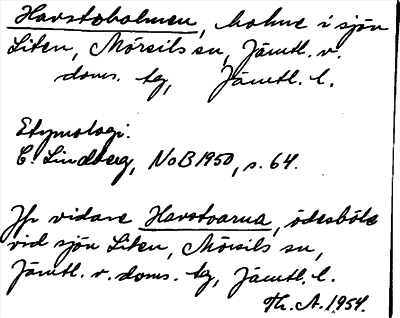 Havstoholmen, holme i sjön
Liten, Mörsils sn, Jämtl. v.
doms. tg, Jämtl. l.
Etymologi:
C. Lindberg, NoB 1950, s. 64.
Jfr vidare Havstvarna, ödesböle
vid sjön Liten, Mörsils sn,
Jämtl. v. doms. tg, Jämtl. l.
Th. A. 1954.